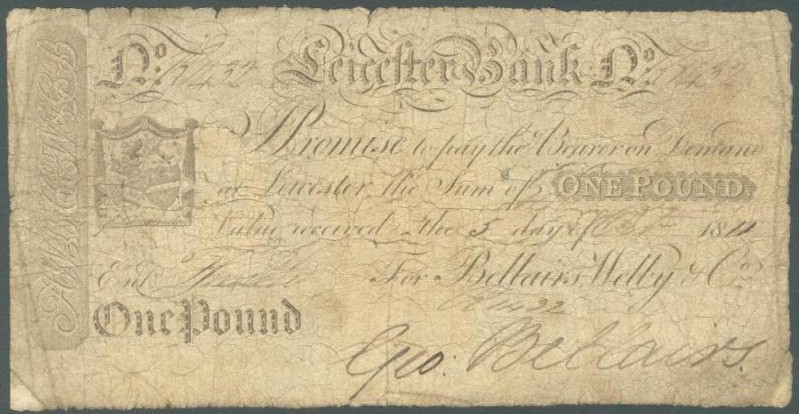 No. Leicester Bank No.
I Promise to pay the Bearer on Demand
at Leicester the Sum of ONE POUND.
Value received the 5 day of Octr 1811
Entd For Bellairs, Welby & Co.
One Pound
Geo: Bellairs.